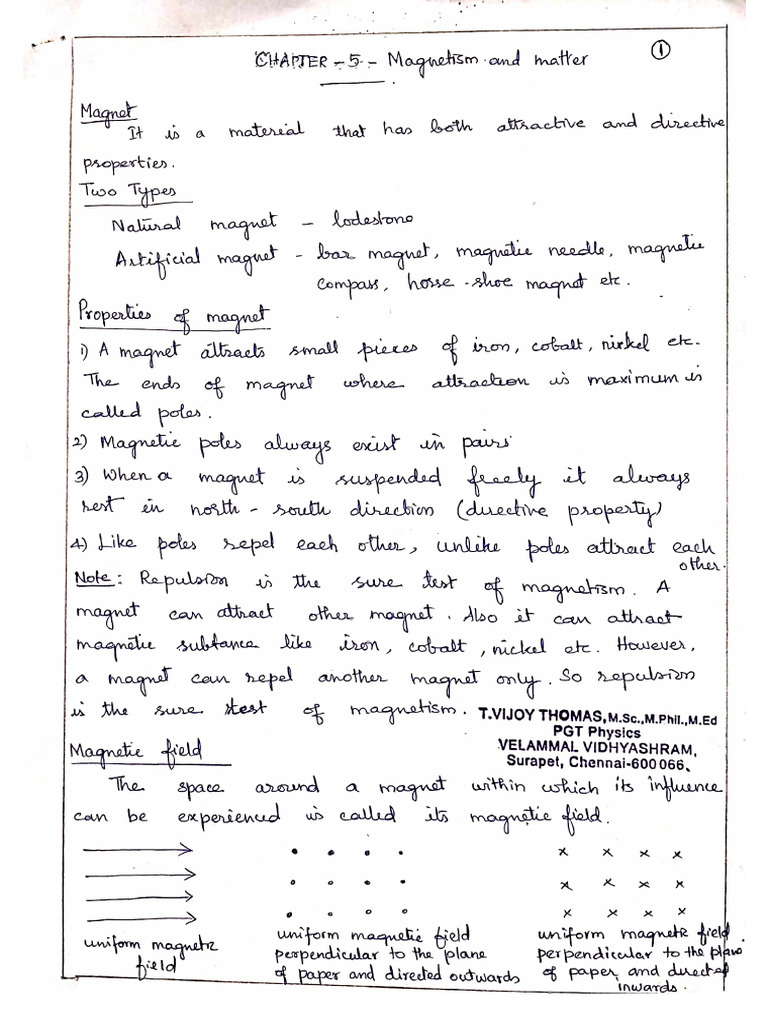 CHAPTER - 5 - Magnetism and matter
1
Magnet
It is a material that has both attractive and directive
properties.
Two Types
Natural magnet - lodestone
Artificial magnet - bar magnet, magnetic needle, magnetic
compass, horse-shoe magnet etc.
Properties of magnet
1) A magnet attracts small pieces of iron, cobalt, nickel etc.
The ends of magnet where attraction is maximum is
called poles.
2) Magnetic poles always exist in pairs
3) When a magnet is suspended freely it always
rest in north - south direction (directive property)
4) Like poles repel each other, unlike poles attract each
other.
Note: Repulsion is the sure test of magnetism. A
magnet can attract other magnet. Also it can attract
magnetic subtance like iron, cobalt, nickel etc. However,
a magnet can repel another magnet only. So repulsion
is the sure test of magnetism.
T.VIJOY THOMAS, M.Sc.,M.Phil.,M.Ed
PGT Physics
VELAMMAL VIDHYASHRAM,
Surapet, Chennai-600 066.
Magnetic field
The space around a magnet within which its influence
can be experienced is called its magnetic field.
uniform magnetic
field
uniform magnetic field
perpendicular to the plane
of paper and directed outwards
uniform magnetic field
perpendicular to the plane
of paper and directed
inwards.